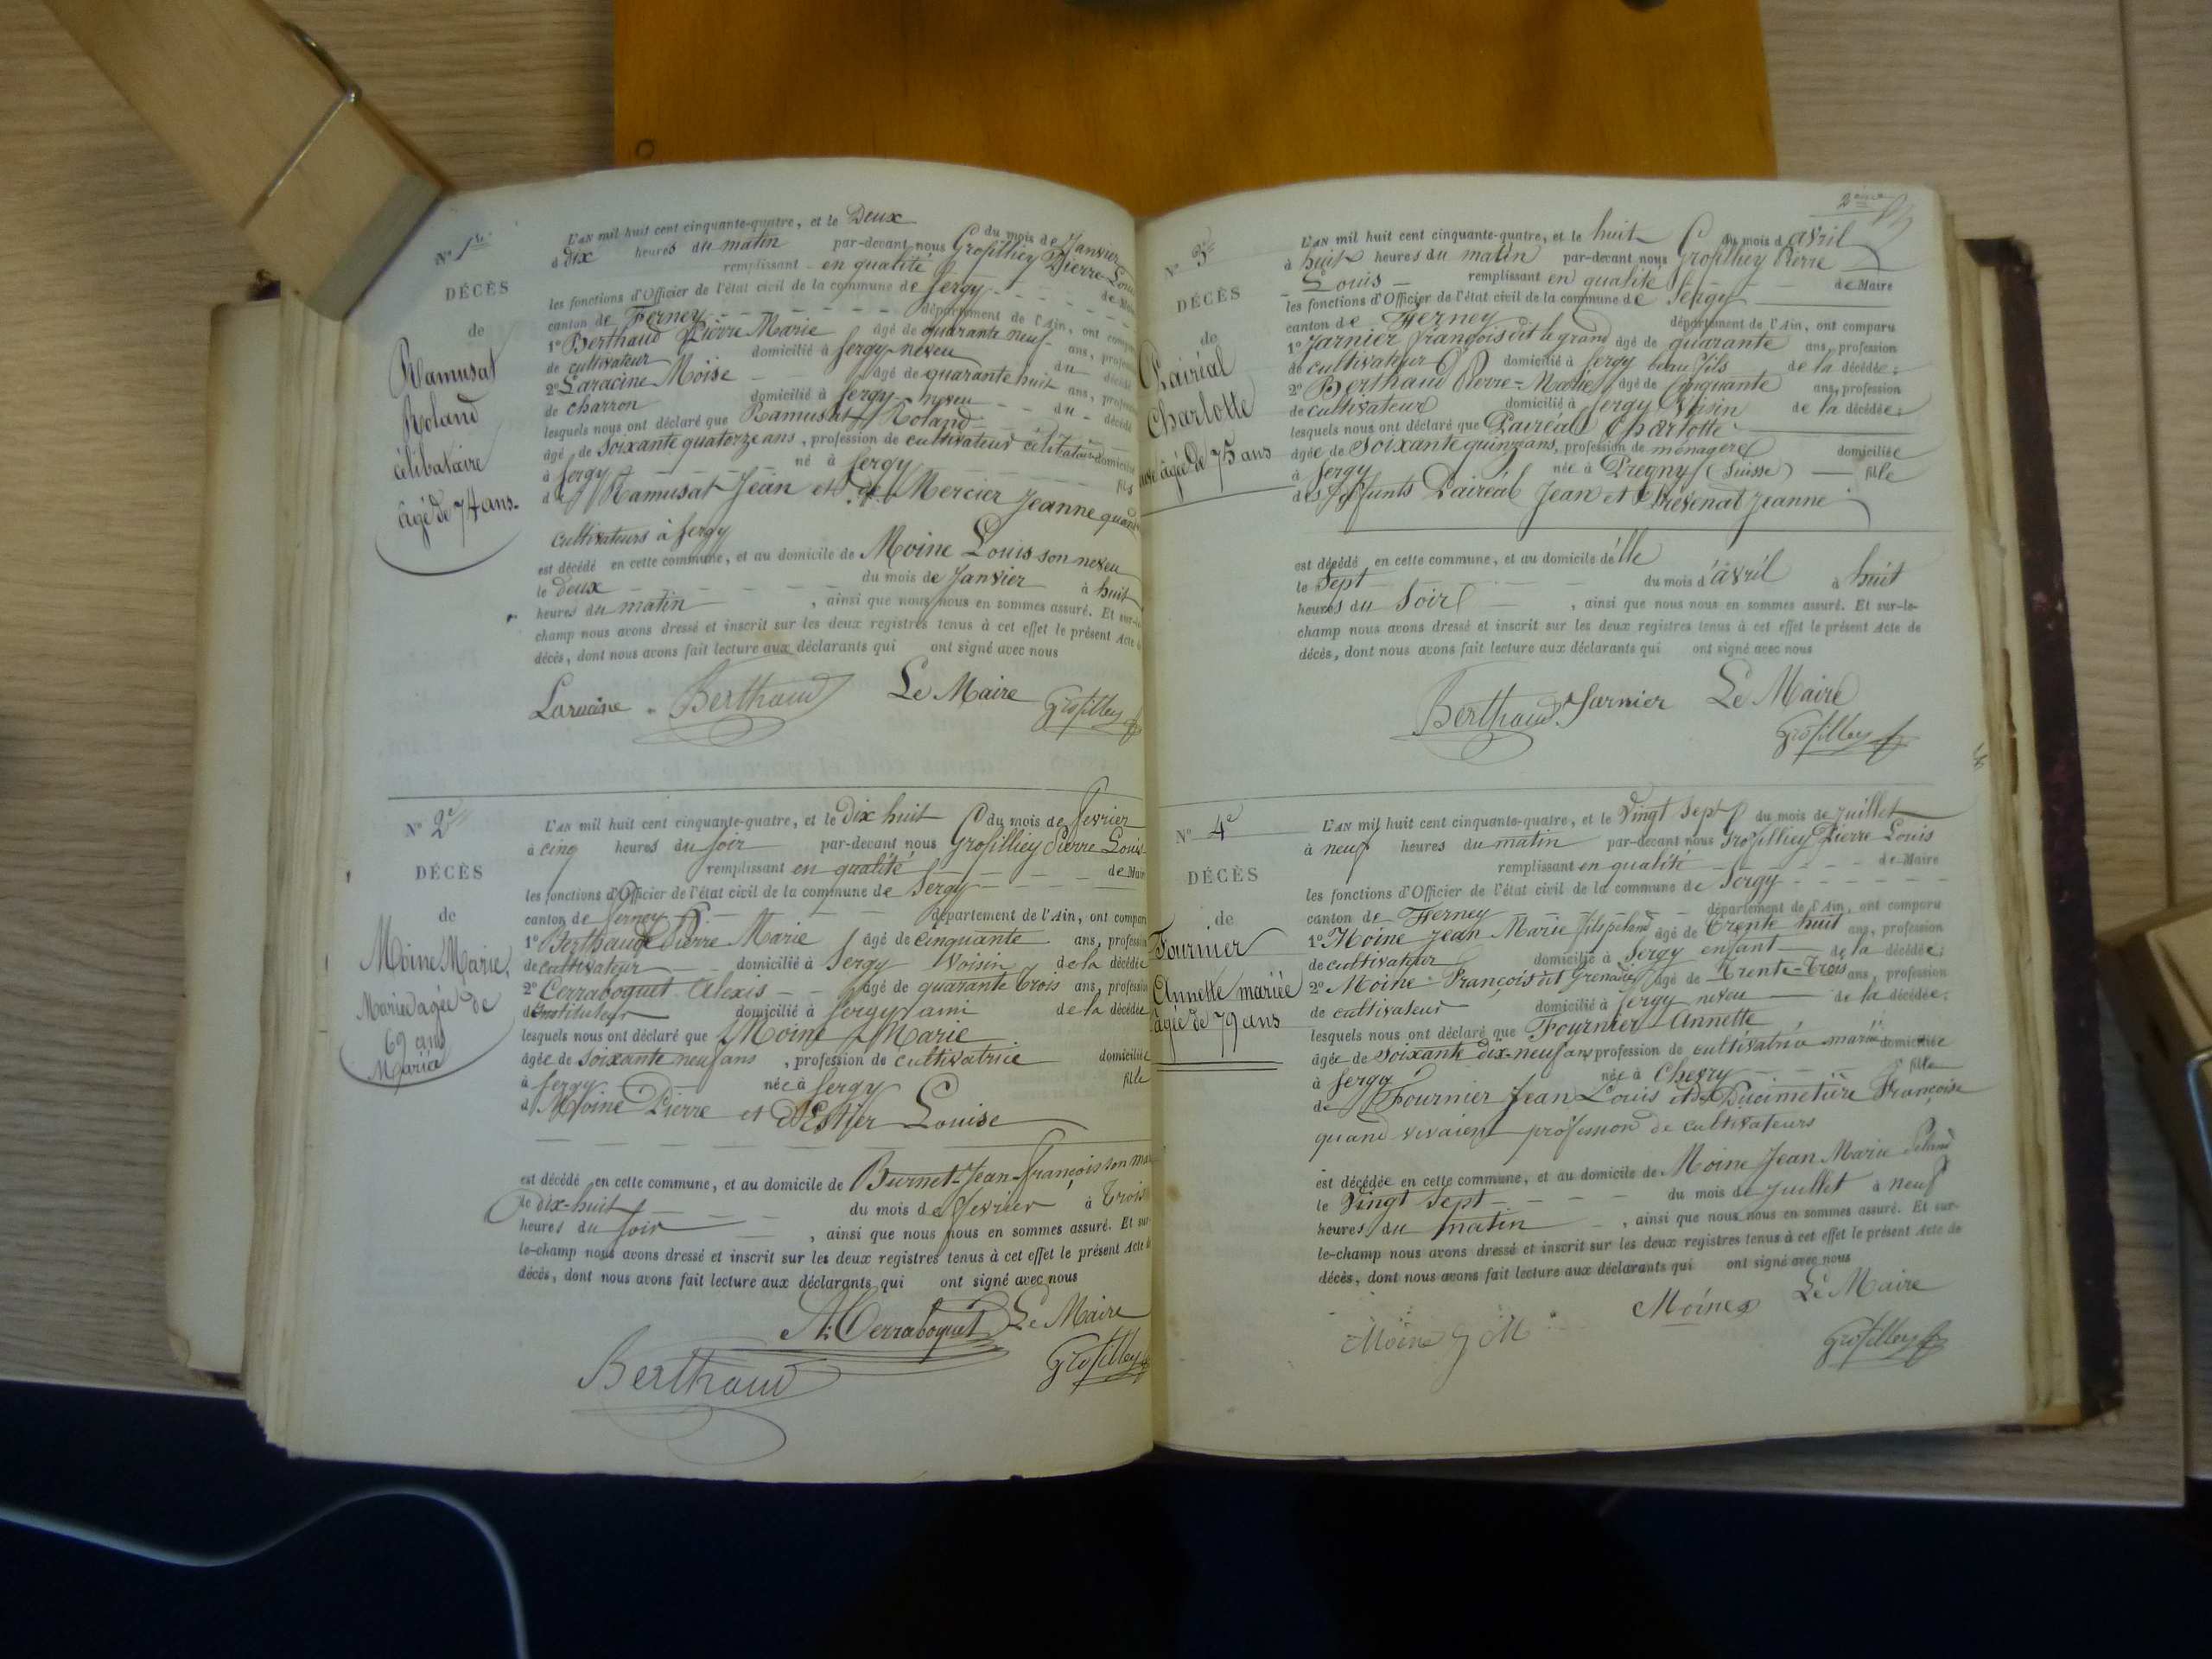 N° 1er
DÉCÈS
de
Ramusat
Roland
célibataire
âgé de 74 ans.
L'AN mil huit cent cinquante-quatre, et le Deux du mois de Janvier
à dix heures du matin par-devant nous Grosfilliey Pierre Louis
remplissant en qualité de Maire
les fonctions d'Officier de l'état civil de la commune de Sergy
canton de Ferney département de l'Ain, ont comparu
1° Berthaud Pierre Marie âgé de quarante neuf ans, profession
de cultivateur domicilié à Sergy neveu du décédé
2° Laracine Moise âgé de quarante huit ans, profession
de charron domicilié à Sergy neveu du décédé
lesquels nous ont déclaré que Ramusat Roland
âgé de soixante quatorze ans, profession de cultivateur célibataire domicilié
à Sergy né à Sergy fils
de Ramusat Jean et de Mercier Jeanne quand
cultivateurs à Sergy
est décédé en cette commune, et au domicile de Moine Louis son neveu
le deux du mois de Janvier à huit
heures du matin, ainsi que nous nous en sommes assuré. Et sur-le-
champ nous avons dressé et inscrit sur les deux registres tenus à cet effet le présent Acte de
décès, dont nous avons fait lecture aux déclarants qui ont signé avec nous
Laracine Berthaud Le Maire Grosfilley
N° 2e
DÉCÈS
de
Moine Marie,
Mariée âgée de
69 ans
L'AN mil huit cent cinquante-quatre, et le Dix huit du mois de Fevrier
à cinq heures du soir par-devant nous Grosfilliey Pierre Louis
remplissant en qualité de Maire
les fonctions d'Officier de l'état civil de la commune de Sergy
canton de Ferney département de l'Ain, ont comparu
1° Berthaud Pierre Marie âgé de cinquante ans, profession
de cultivateur domicilié à Sergy Voisin de la décédée
2° Cerraboquet Alexis âgé de quarante trois ans, profession
d'instituteur domicilié à Sergy ami de la décédée
lesquels nous ont déclaré que Moine Marie
âgée de soixante neuf ans, profession de cultivatrice domiciliée
à Sergy née à Sergy fille
de Moine Pierre et d'Esther Louise
est décédé en cette commune, et au domicile de Burnet Jean François son mari
le dix-huit du mois de fevrier à Trois
heures du soir, ainsi que nous nous en sommes assuré. Et sur-
le-champ nous avons dressé et inscrit sur les deux registres tenus à cet effet le présent Acte de
décès, dont nous avons fait lecture aux déclarants qui ont signé avec nous
A. Cerraboquet Le Maire
Berthaud Grosfilley
2ème
N° 3e
DÉCÈS
de
Pairéal
Charlotte
âgée de 75 ans
L'AN mil huit cent cinquante-quatre, et le huit du mois d'avril
à huit heures du matin par-devant nous Grosfilliey Pierre
Louis remplissant en qualité de Maire
les fonctions d'Officier de l'état civil de la commune de Sergy
canton de Ferney département de l'Ain, ont comparu
1° Jarnier François dit le grand âgé de quarante ans, profession
de cultivateur domicilié à Sergy beau fils de la décédée;
2° Berthaud Pierre-Marie âgé de Cinquante ans, profession
de cultivateur domicilié à Sergy Voisin de la décédée;
lesquels nous ont déclaré que Pairéal Charlotte
âgée de Soixante quinze ans, profession de ménagère domiciliée
à Sergy née à Pregny (Suisse) fille
des défunts Pairéal Jean et Prévenat Jeanne
est décédé en cette commune, et au domicile d'elle
le Sept du mois d'avril à huit
heures du Soir, ainsi que nous nous en sommes assuré. Et sur-le-
champ nous avons dressé et inscrit sur les deux registres tenus à cet effet le présent Acte de
décès, dont nous avons fait lecture aux déclarants qui ont signé avec nous
Berthaud Jarnier Le Maire
Grosfilley
N° 4e
DÉCÈS
de
Fournier
Annette mariée
âgée de 79 ans
L'AN mil huit cent cinquante-quatre, et le Vingt Sept du mois de Juillet
à neuf heures du matin par-devant nous Grosfilliey Pierre Louis
remplissant en qualité de Maire
les fonctions d'Officier de l'état civil de la commune de Sergy
canton de Ferney département de l'Ain, ont comparu
1° Moine Jean Marie fils âgé de Trente huit ans, profession
de cultivateur domicilié à Sergy enfant de la décédée;
2° Moine François dit Grenadier âgé de Trente-Trois ans, profession
de cultivateur domicilié à Sergy neveu de la décédée;
lesquels nous ont déclaré que Fournier Annette
âgée de Soixante dix-neuf ans profession de cultivatrice mariée domiciliée
à Sergy née à Chevry fille
de Fournier Jean Louis et de Ducimetière Françoise
quand vivaient profession de cultivateurs
est décédée en cette commune, et au domicile de Moine Jean Marie
le Vingt Sept du mois de Juillet à neuf
heures du matin, ainsi que nous nous en sommes assuré. Et sur-
le-champ nous avons dressé et inscrit sur les deux registres tenus à cet effet le présent Acte de
décès, dont nous avons fait lecture aux déclarants qui ont signé avec nous
Moine J M Moine Le Maire
Grosfilley